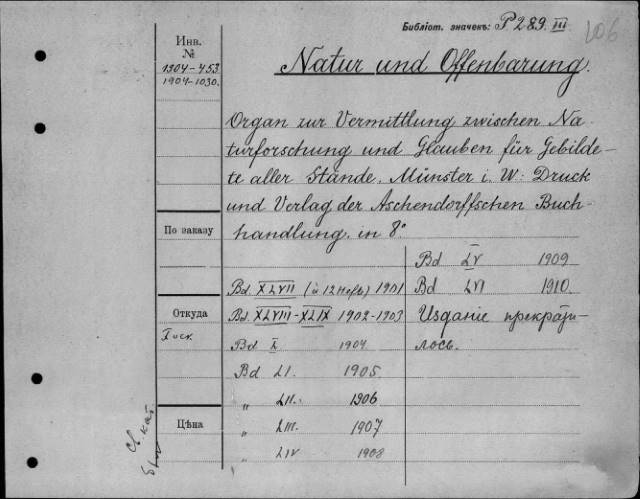 Библіот. значекъ: P 289. III
106
Инв.
№
1904-453
1904-1030.
Natur und Offenbarung.
Organ zur Vermittlung zwischen Na-
turforschung und Glauben für Gebilde-
te aller Stände. Münster i. W: Druck
und Verlag der Aschendorffschen Buch-
handlung. in 8°
По заказу
Bd LV 1909
Bd. XLVII (à 12 Hefte) 1901
Bd LVI 1910.
Откуда
Bd. XLVIII-XLIX 1902-1903
Изданіе прекрати-
лось.
Bd L 1904
Bd LI. 1905
„ LII. 1906
Цѣна
„ LIII. 1907
„ LIV 1908